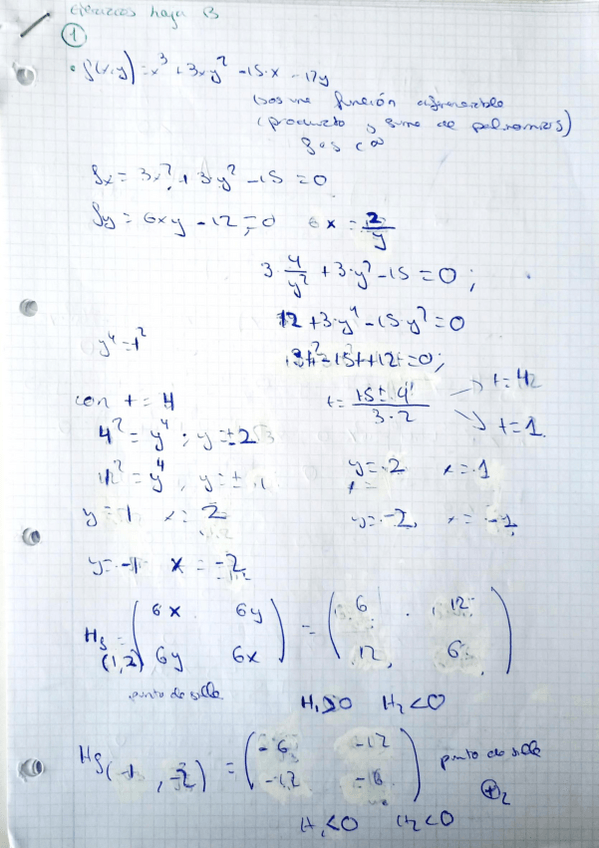 Ejercicios hoja B
1
• f(x,y) = x³ + 3xy² - 15·x - 12y
es una función diferenciable
(producto y suma de polinomios)
f es C∞
fx = 3x² + 3·y² - 15 = 0
fy = 6xy - 12 = 0 x = 2/y
3·4/y² + 3·y² - 15 = 0;
12 + 3·y⁴ - 15·y² = 0
y⁴ = t²
3t² - 15t + 12 = 0;
con t = 4
t = (15 ± 9)/(3·2) → t = 4
→ t = 1
4² = y⁴; y = ±2
1² = y⁴, y = ±1
y = 2 x = 1
y = 1 x = 2
y = -2, x = -1
y = -1 x = -2
Hf (1,2) = (6x 6y; 6y 6x) = (6 12; 12 6)
punto de silla
H₁>0 H₂<0
Hf (-1, -2) = (-6 -12; -12 -6) punto de silla
H₁<0 H₂<0